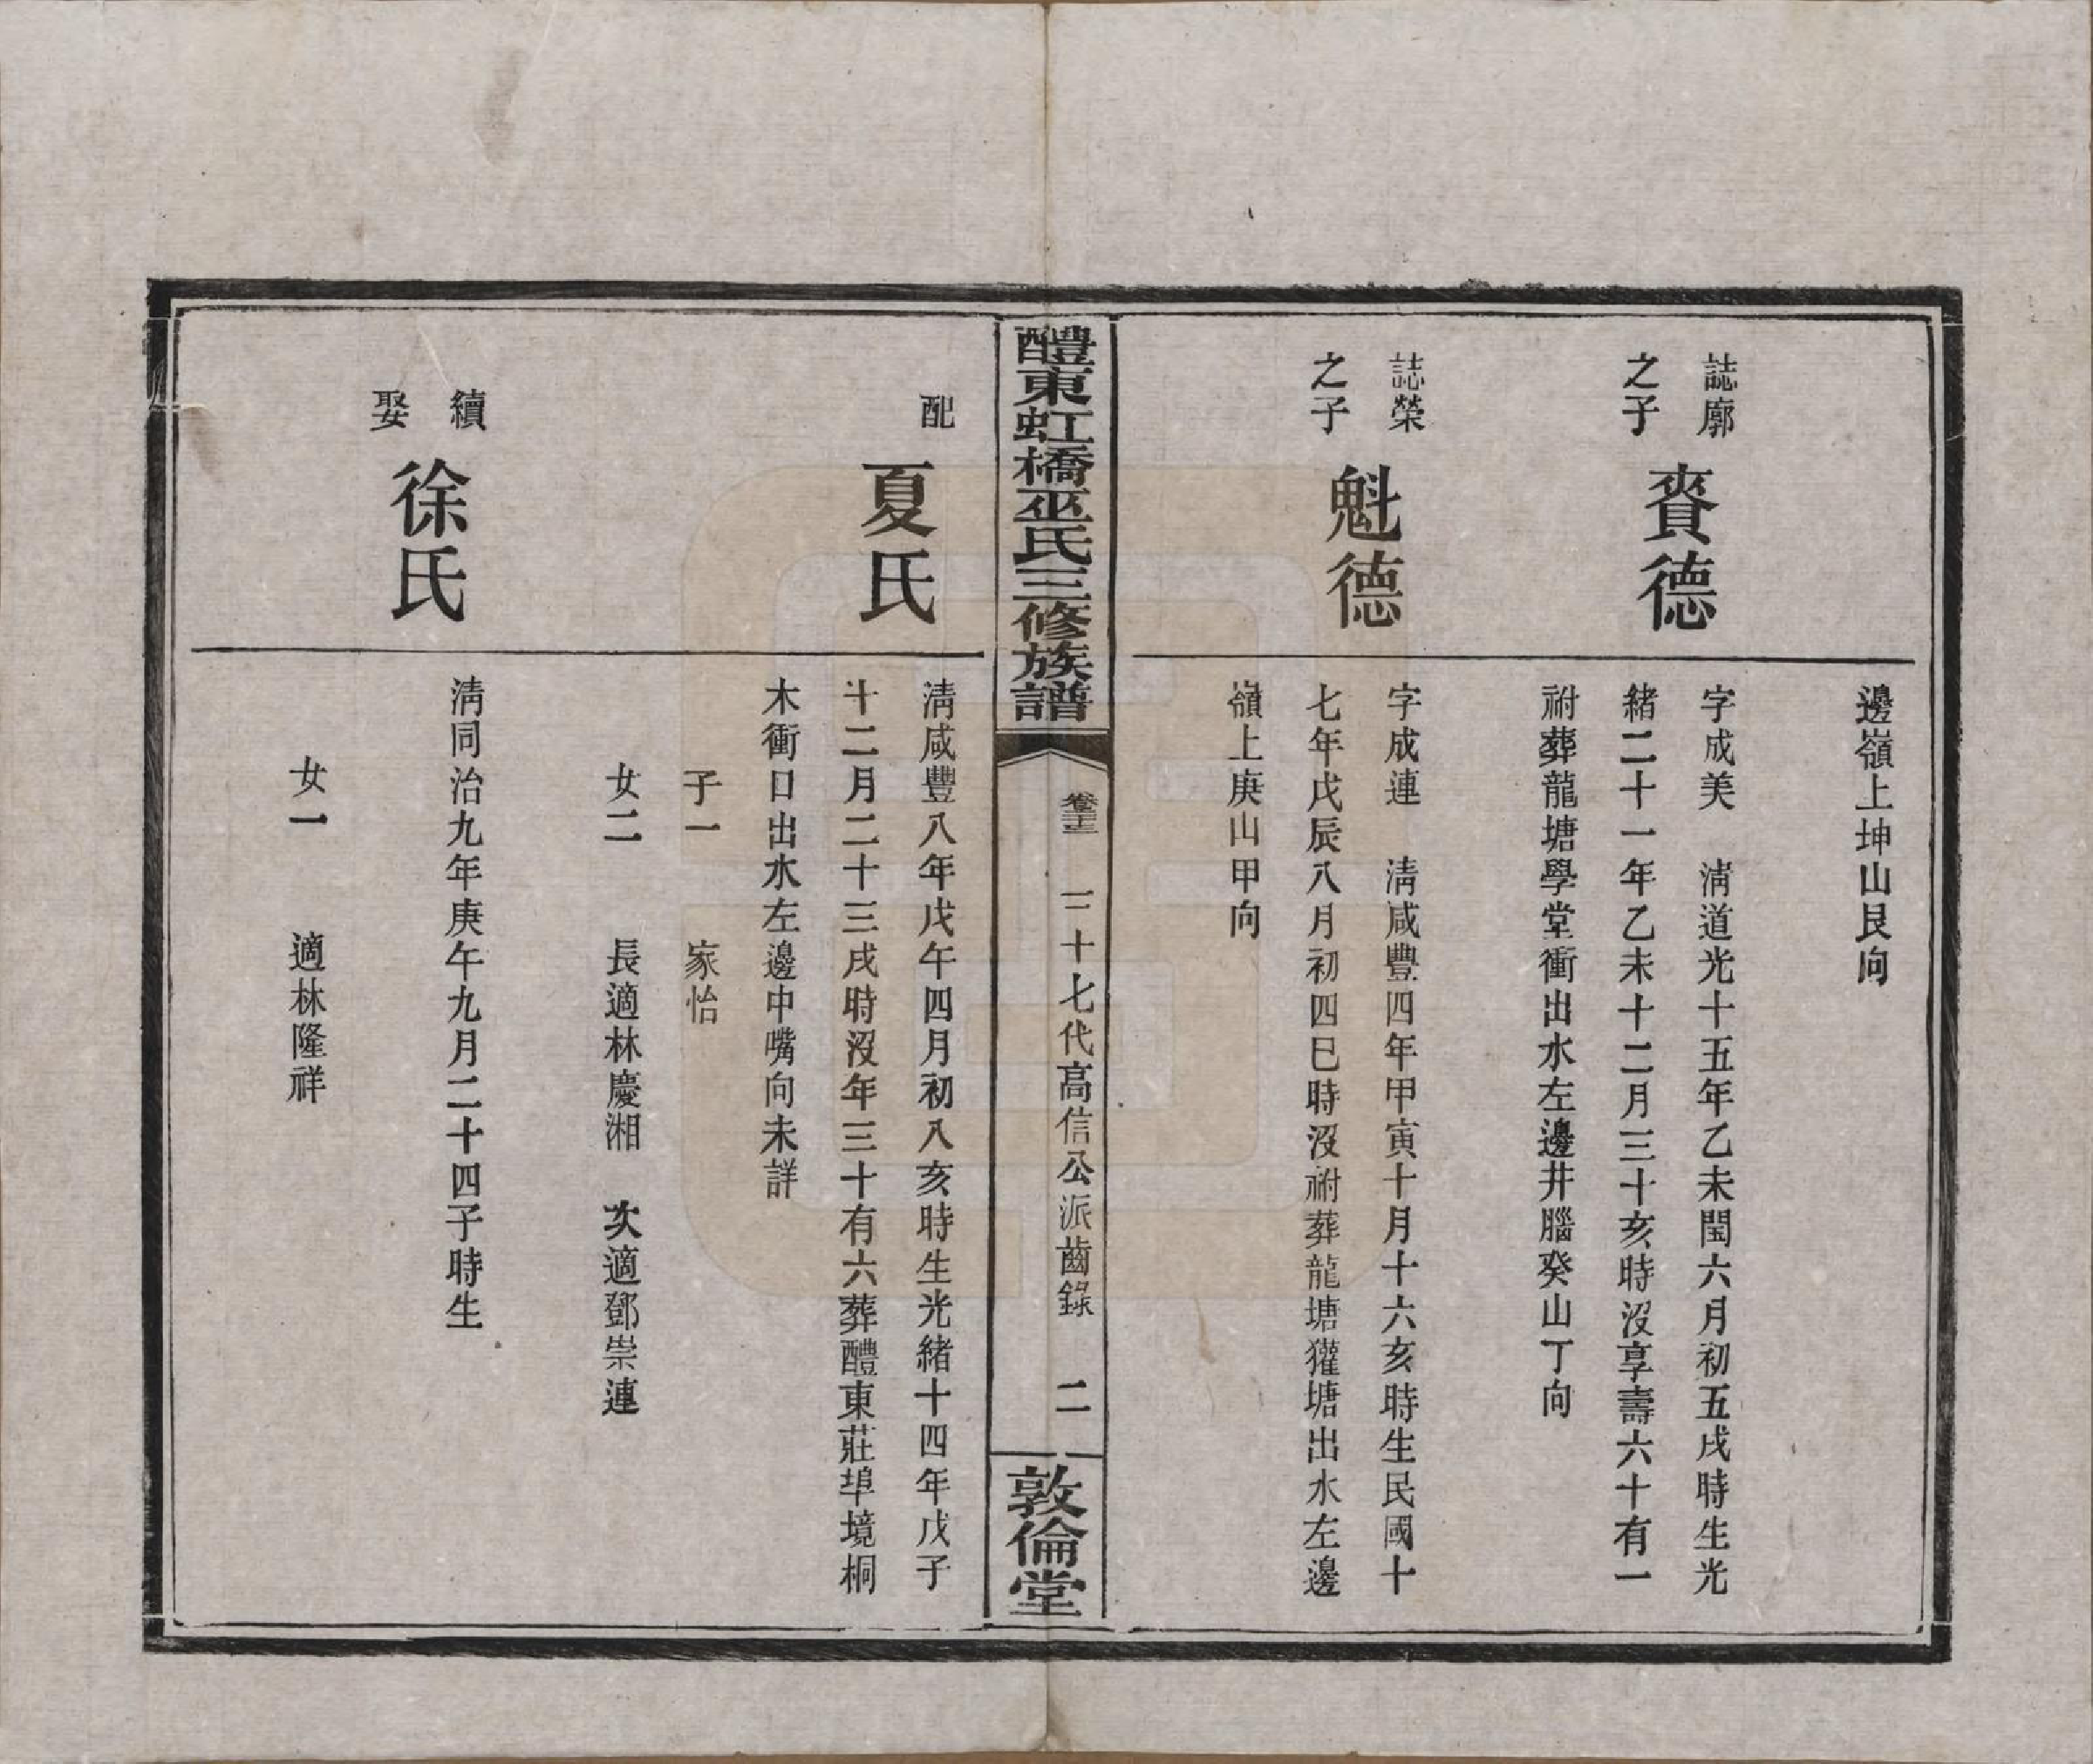 邊嶺上坤山艮向
誌廓
之子
賚德
字成美　淸道光十五年乙未閏六月初五戌時生光
緖二十一年乙未十二月三十亥時沒享壽六十有一
祔葬龍塘學堂衝出水左邊井腦癸山丁向
誌榮
之子
魁德
字成連　淸咸豐四年甲寅十月十六亥時生民國十
七年戊辰八月初四巳時沒祔葬龍塘獾塘出水左邊
嶺上庚山甲向
醴東虹橋巫氏三修族譜
三十七代高信公派齒錄
二
敦倫堂
配
夏氏
淸咸豐八年戊午四月初八亥時生光緖十四年戊子
十二月二十三戌時沒年三十有六葬醴東莊埠境桐
木衝口出水左邊中嘴向未詳
子一　家怡
女二　長適林慶湘　次適鄧崇連
續
娶
徐氏
淸同治九年庚午九月二十四子時生
女一　適林隆祥